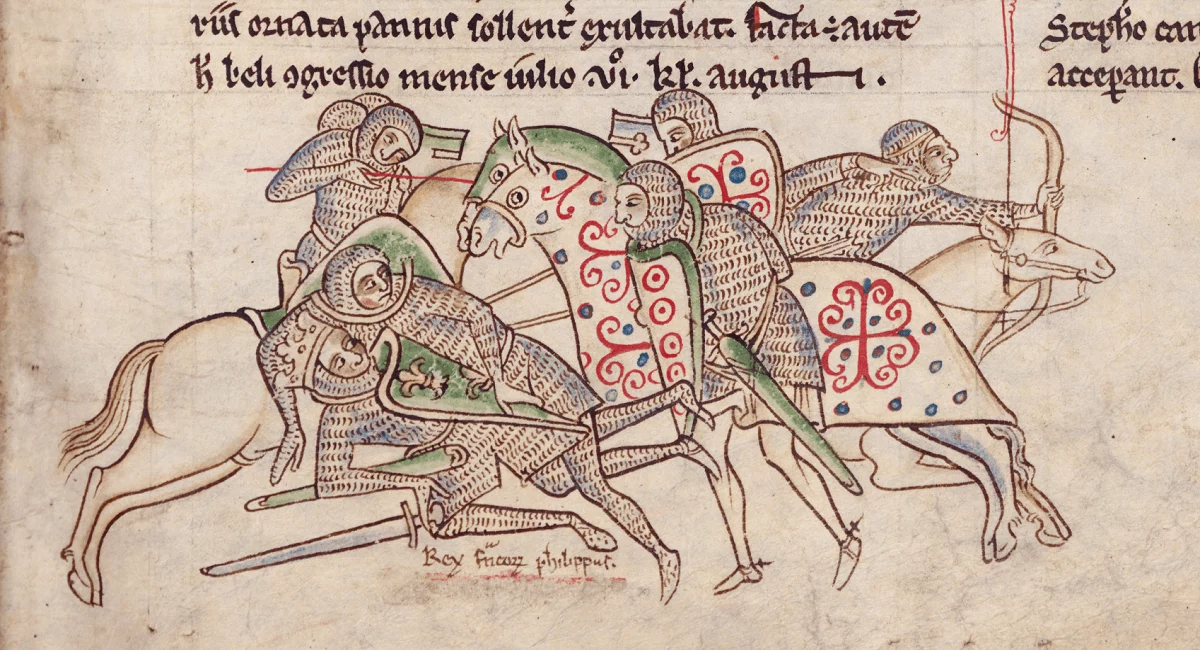 riis ornata pannis sollent̾ exultabat. Facta ÷ autē
h̄ beli ꝯgressio mense iulio vͦi. kł. augusti.
Stepħo
acceꝑant.
Rex fͣncoꝝ philippus.